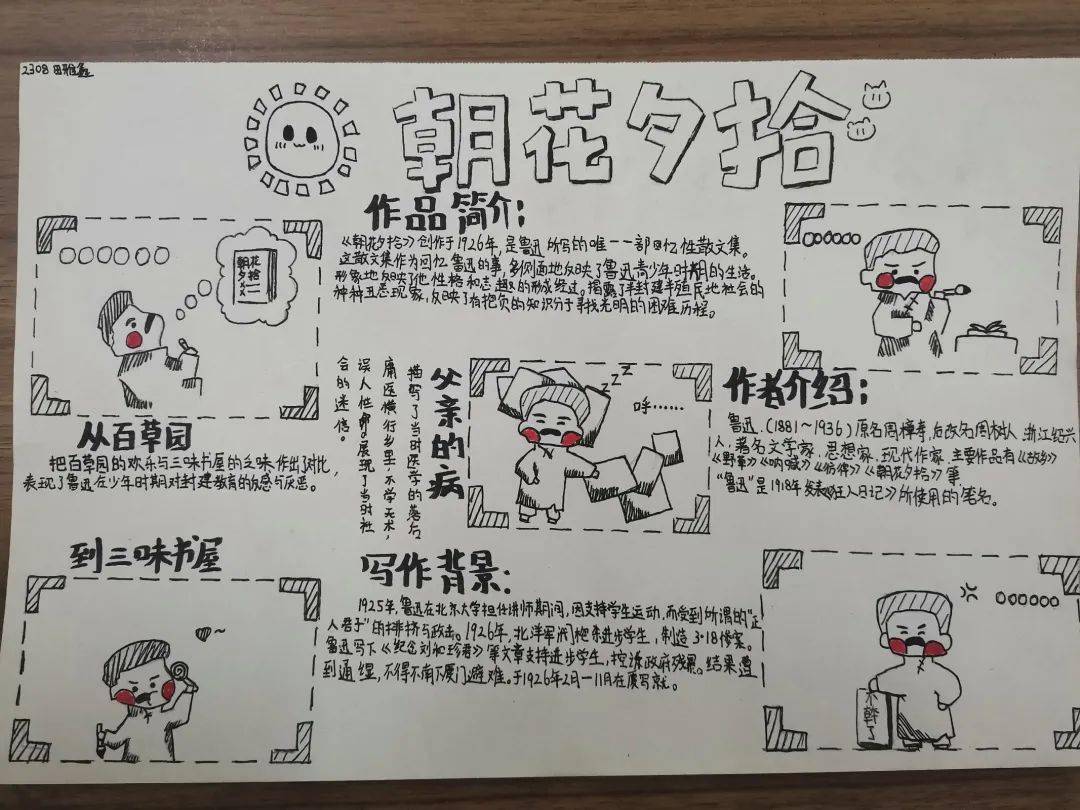 2308 田雅鑫
朝花夕拾
朝花
夕拾
作品简介：
《朝花夕拾》创作于1926年，是鲁迅所写的唯一一部回忆性散文集。
这散文集作为回忆鲁迅的事，多侧面地反映了鲁迅青少年时期的生活。
形象地反映了他性格和志趣的形成经过。揭露了半封建半殖民地社会的
种种丑恶现象，反映了有抱负的知识分子寻找光明的困难历程。
从百草园
把百草园的欢乐与三味书屋的乏味作出了对比，
表现了鲁迅在少年时期对封建教育的反感与厌恶。
到三味书屋
父亲的病
描写了当时医学的落后，
庸医横行乡里，不学无术，
误人性命。展现了当时社
会的迷信。
zzz
呼……
作者介绍：
鲁迅.（1881～1936）原名周樟寿，后改名周树人，浙江绍兴
人，著名文学家、思想家、现代作家，主要作品有《故乡》
《野草》《呐喊》《彷徨》《朝花夕拾》等
“鲁迅”是1918年发表《狂人日记》所使用的笔名。
写作背景：
1925年，鲁迅在北京大学担任讲师期间，因支持学生运动，而受到所谓的“正
人君子”的排挤与攻击。1926年，北洋军阀枪杀进步学生，制造3·18惨案。
鲁迅写下《纪念刘和珍君》等文章支持进步学生，控诉政府残暴。结果遭
到通缉，不得不南下厦门避难。于1926年2月—11月在厦写就。
不幹了